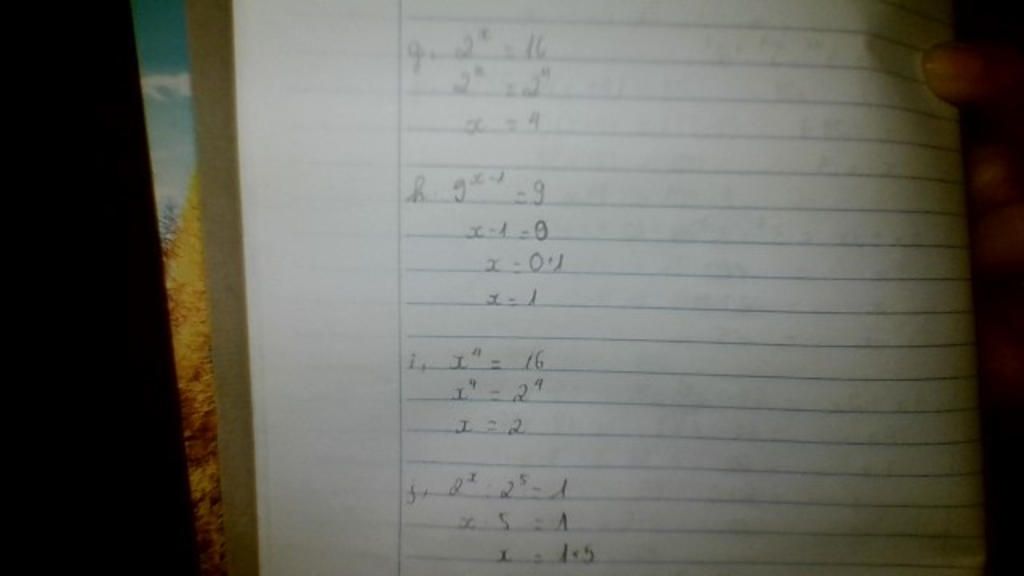 g, 2ˣ = 16
2ˣ = 2⁴
x = 4
h. 9ˣ⁻¹ = 9
x-1 = 0
x = 0+1
x = 1
i, x⁴ = 16
x⁴ = 2⁴
x = 2
j, 2ˣ : 2⁵ = 1
x - 5 = 1
x = 1+5